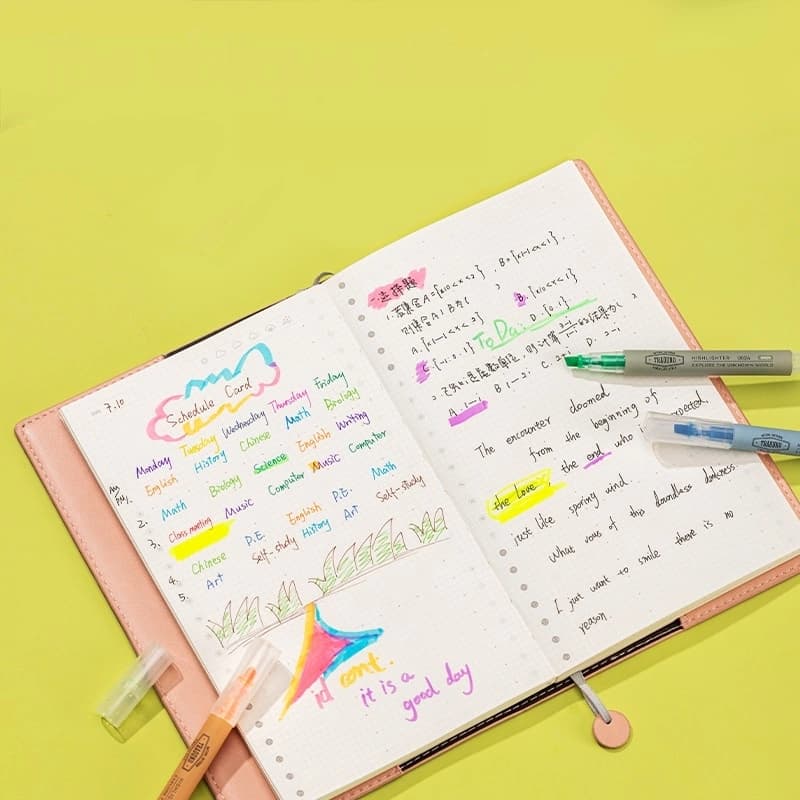 7.10
Schedule Card
Monday Tuesday Wednesday Thursday Friday
English History Chinese Math Biology
2. Math Biology Science English Writing
3. Class meeting Music Computer Music Computer
4. Chinese P.E. English P.E. Math
5. Art Self-study History Art Self-study
it is a
good day
一.选择题
1.若集合A={x|0<x<2}, B={x|-1<x<1},
则集合A∩B为( )
A. {x|-1<x<2} B. {x|0<x<1}
C. {-1.0.1} D. {0.1}
To Do:
The encounter doomed
from the beginning of
the love, the end who
just like spring wind.
What of this boundless darkness.
I just want to smile there is no
reason.
HIGHLIGHTER
EXPLORE THE UNKNOWN WORLD